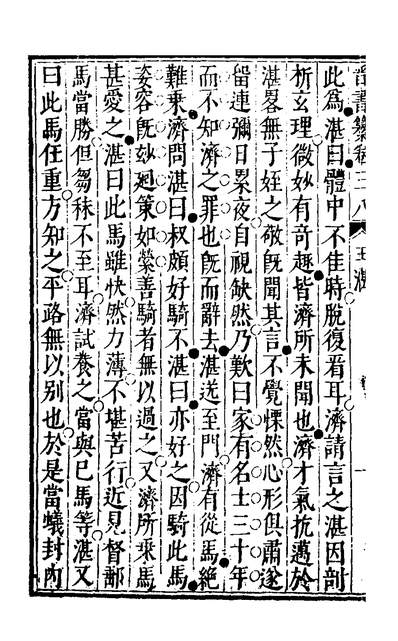 晉書纂卷三八 王湛
此為湛曰體中不佳時脫復看耳濟請言之湛因剖
析玄理微妙有奇趣皆濟所未聞也濟才氣抗邁於
湛畧無子姪之敬旣聞其言不覺慄然心形俱肅遂
留連彌日累夜自視缺然乃歎曰家有名士三十年
而不知濟之罪也旣而辭去湛送至門濟有從馬絕
難乗濟問湛曰叔頗好騎不湛曰亦好之因騎此馬
姿容旣妙廻策如縈善騎者無以過之又濟所乗馬
甚愛之湛曰此馬雖快然力薄不堪苦行近見督郵
馬當勝但芻秣不至耳濟試養之當與已馬等湛又
曰此馬任重方知之平路無以别也於是當蟻封內